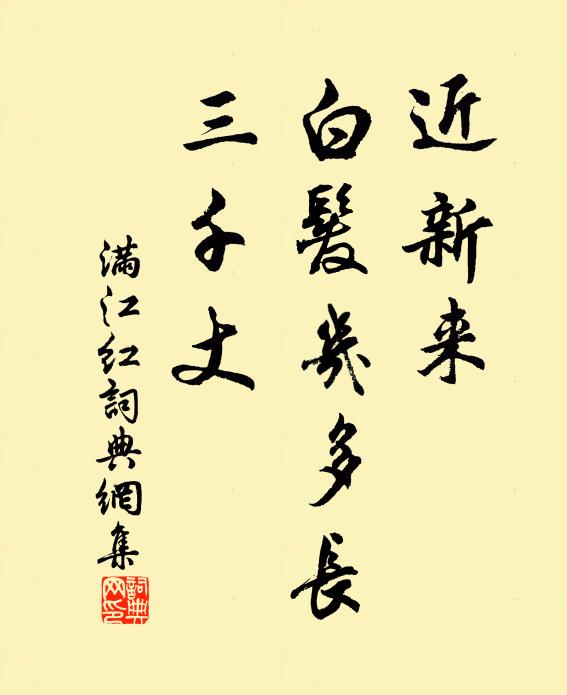 近新来
白髮幾多長
三千丈
满江红詞典網集
詞典网印